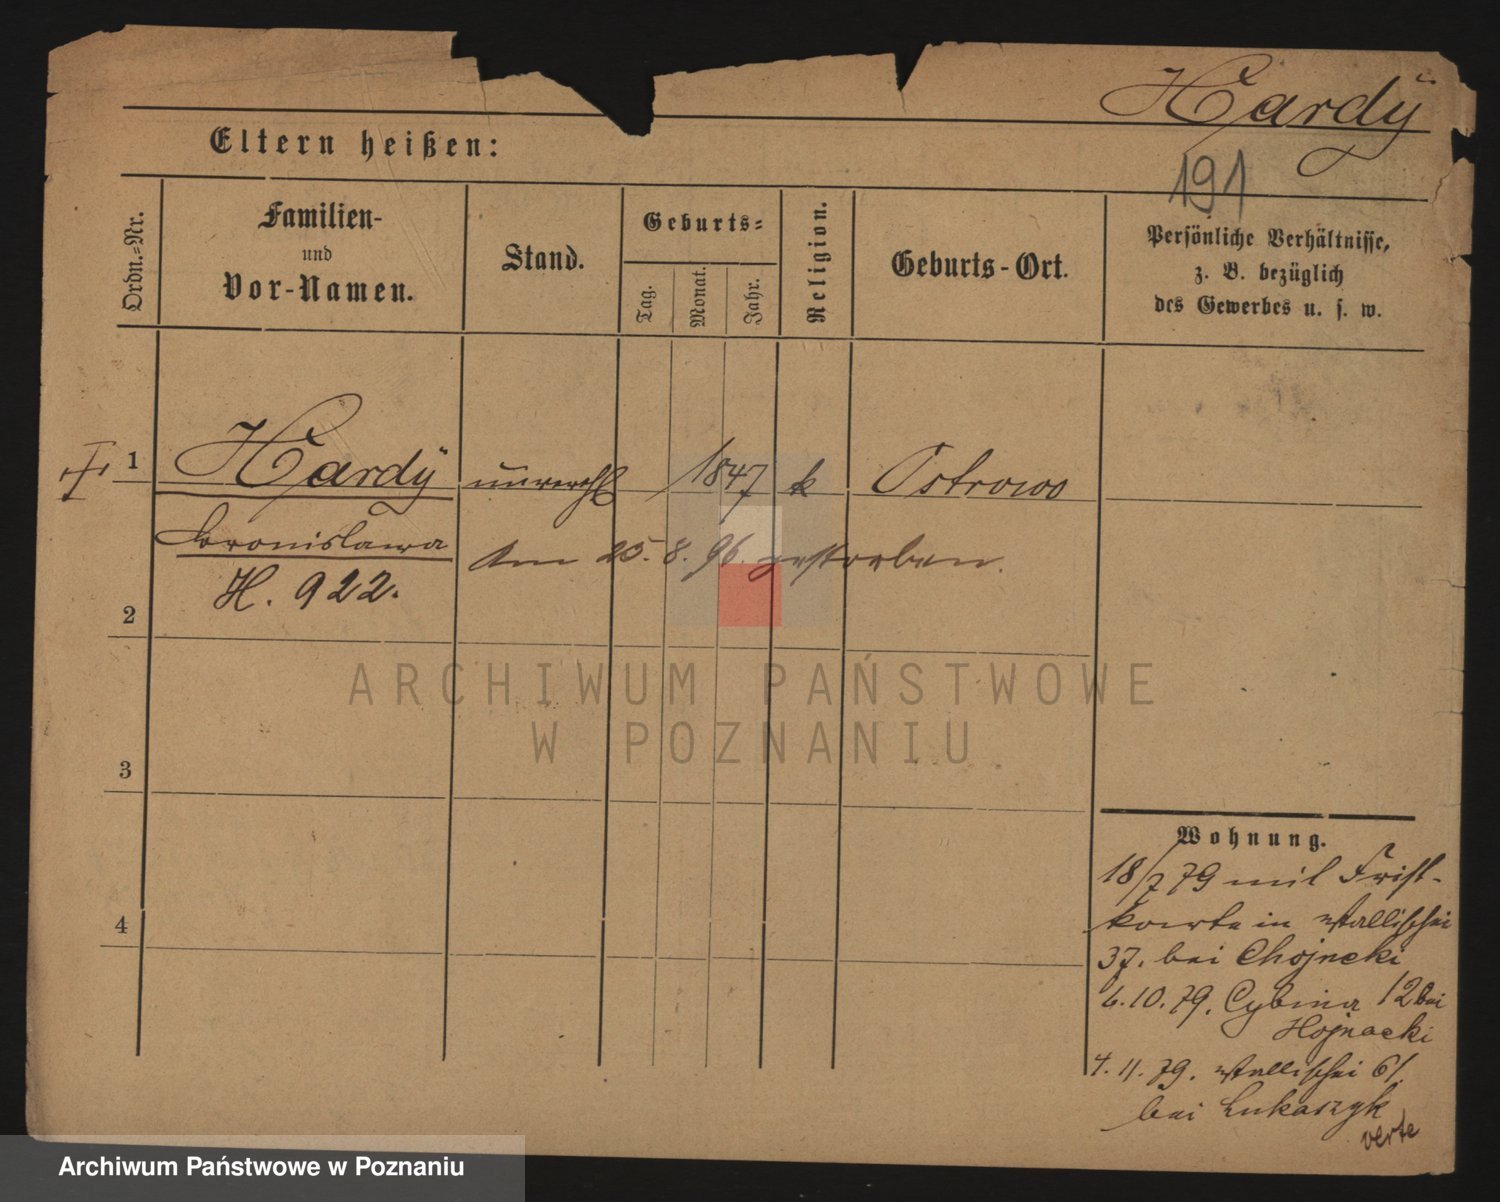 Hardÿ
191
Eltern heißen:
Ordn.-Nr.
Familien-
und
Vor-Namen.
Stand.
Geburts-
Tag.
Monat.
Jahr.
Religion.
Geburts-Ort.
Persönliche Verhältnisse,
z. B. bezüglich
des Gewerbes u. s. w.
1 Hardÿ unverehl 1847 k Ostrowo
Bronislawa
Am 25. 8. 96. gestorben.
H. 922.
2
3
4
Wohnung.
18/7 79 mit Frist-
karte in Wallischei
37. bei Chojneki
6. 10. 79. Cybina 12 bei
Hojnacki
4. 11. 79. Wallischei 61.
bei Lukaszyk
verte
ARCHIWUM PAŃSTWOWE
W POZNANIU
Archiwum Państwowe w Poznaniu